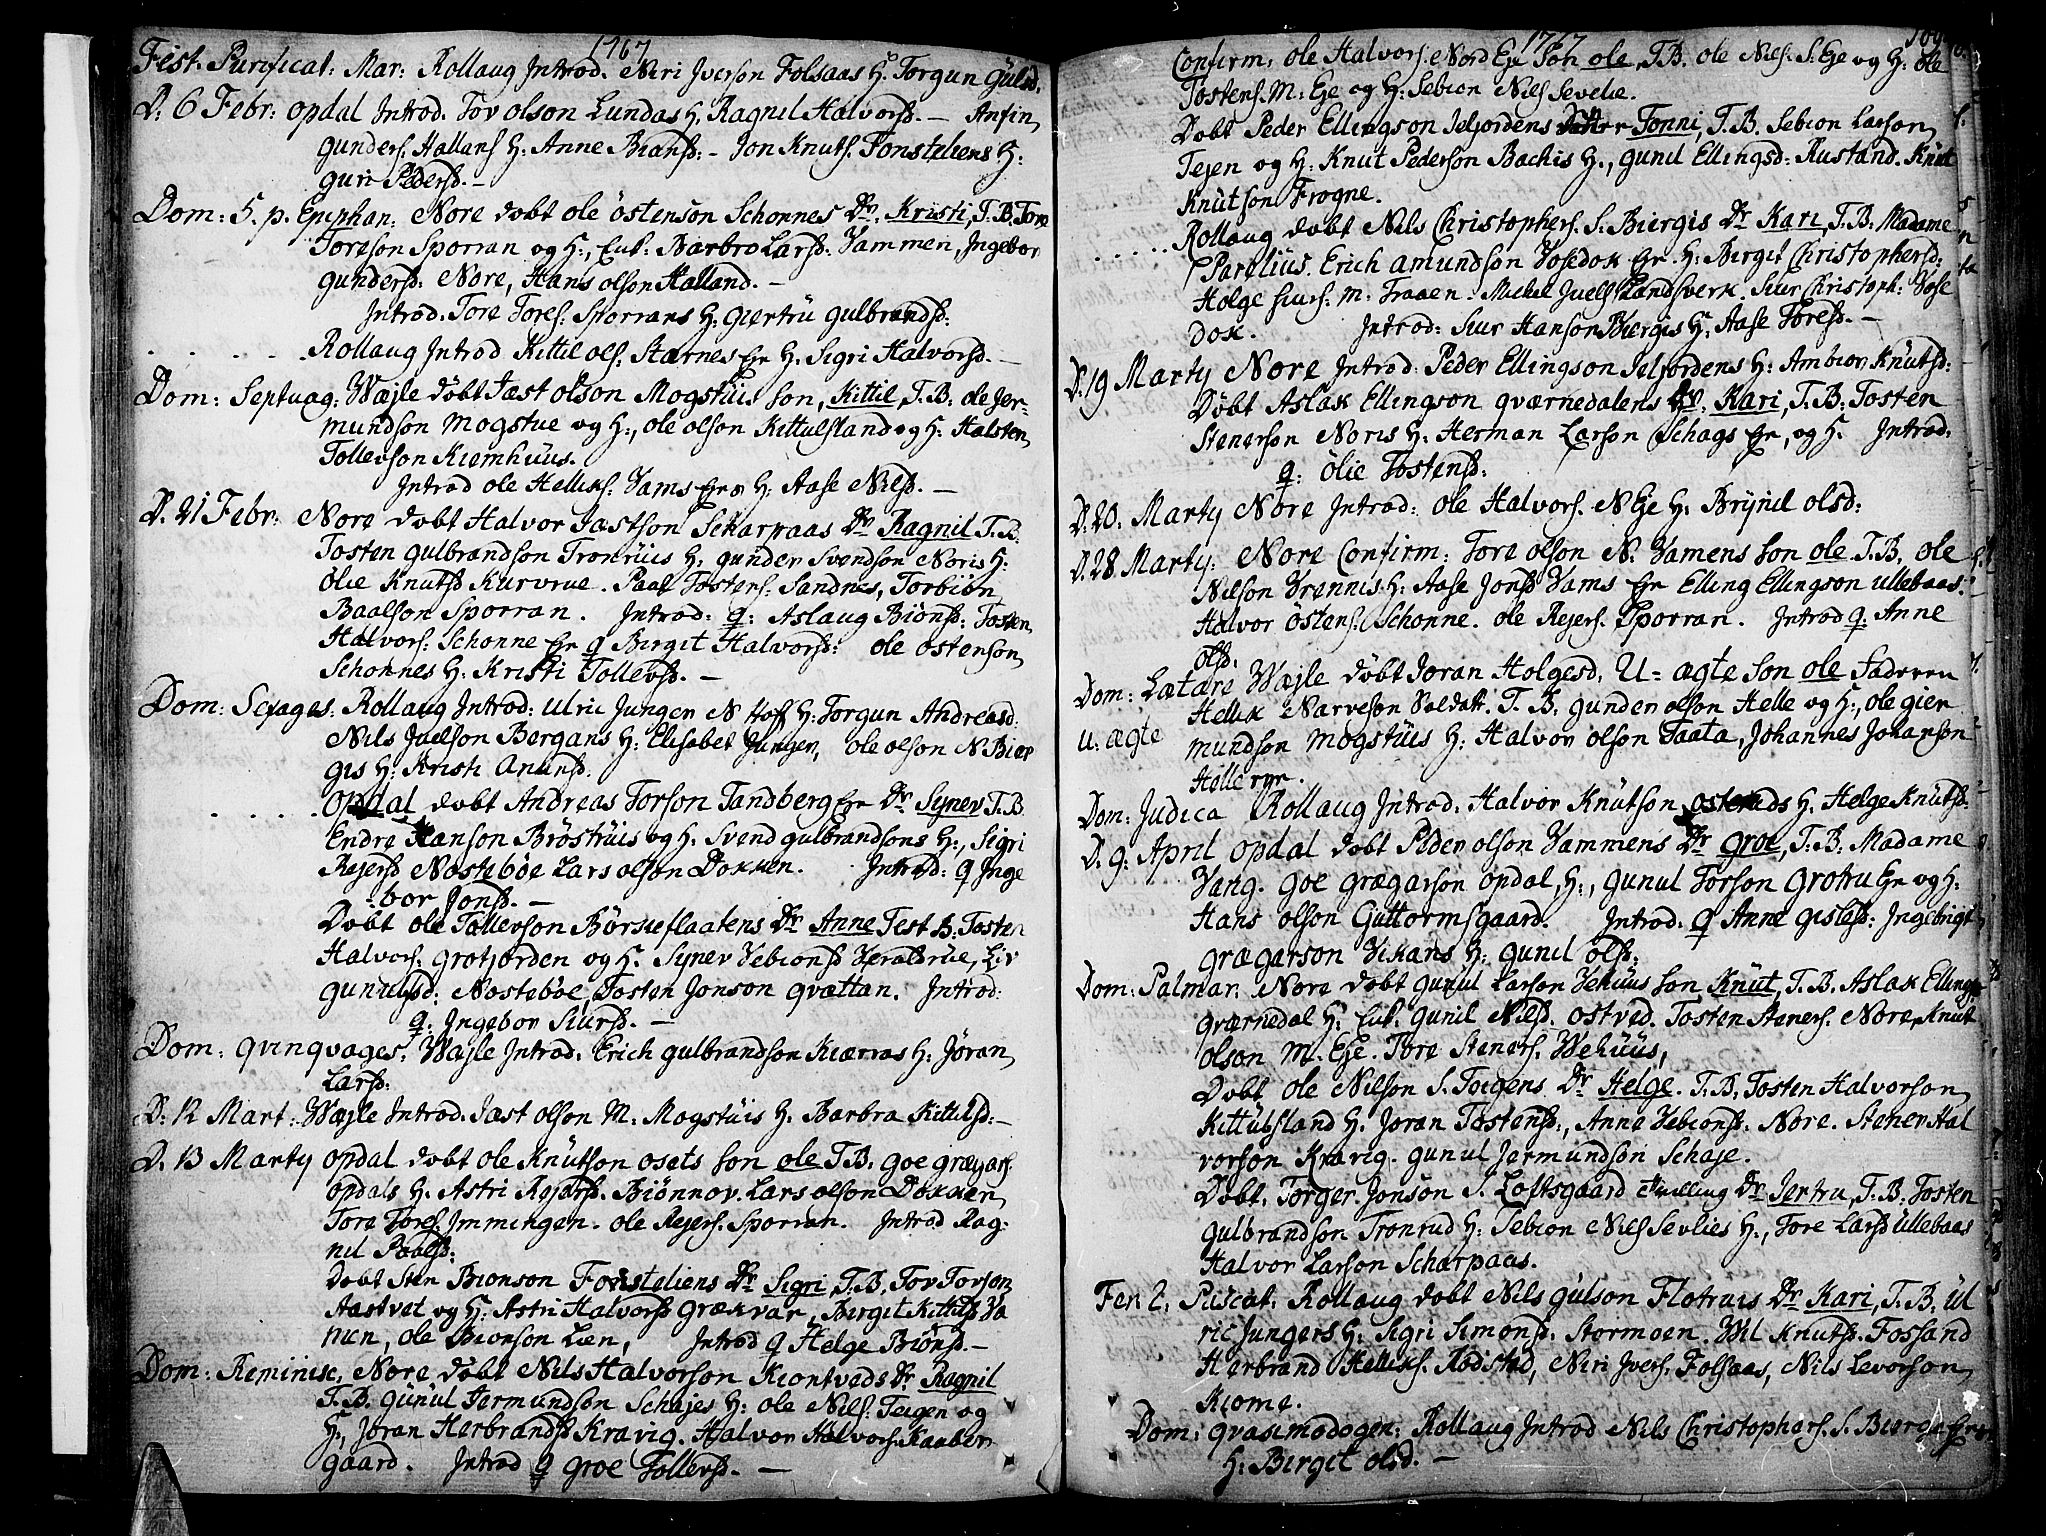 1767
Fest. Purificat: Mar: Rollaug Introd. Niri Iverson Folsaas H: Torgun Gulsd.
D. 6 Febr: Opdal Introd. Tov olson Lundas H. Ragnil Halvorsd. — Anfin
gunders. Hallans H: Anne Biansd: — Jon Knuts. Fonsteliens H:
guri Pedersd. —
Dom: 5. p. Epiphan: Nore døbt ole östenson Schonnes Dr. Kristi, T.B. Tore
Toreson Sporran og H:, Enk: Barbro Larsd. Vammen, Ingebor
gundersd: Nore, Hans olson Halland. —
Introd. Tore Tores: Sporrans H: giertru gulbrandsd:
. . . . . Rollaug Introd Kittil ols. Stærnes Eje H: Sigri Halvorsd. —
Dom: Septuag: Wæjle døbt Jast olson Mogstuis son, Kittil, T.B: ole Jer-
mundson Mogstue og H:, ole olson Kittulsland og H: Halsten
Tollevson Kiemhuus.
Introd ole Helliks: Vams Eje H: Aase Nilsd. —
D. 21 Febr: Nore døbt Halvor Jastson Scharpaas Dr Ragnil T.B:
Tosten gulbrandson Tronruis H: gunder Svendson Noris H:
ölie Knutsd Kurvrue. Paal Tostens: Sandnes, Torbiön
Baalson Sporran. Introd: q: Aslaug Biönsd: Tosten
Halvors: Schonne Eje q Birgit Halvorsd: ole ostenson
Schonnes H: Kristi Tollevsd. —
Dom: Sexages: Rollaug Introd: Ulric Junger N Hoff H: Torgun Andreasd:
Nils Juelson Bergans H: Elisabet Junger, ole olson N. Bier
gis H: Kristi Anunsd.
. . . . . opdal døbt Andreas Torson Tandberg Eje Dr Synev T.B.
Endre Hanson Bröstruis og H: Svend gulbrandsons H:, Sigri
Rejersd Nostebøe Lars olson Dokken. Introd: q Inge
bor Jonsd. —
Døbt ole Tollevson Börsteflaatens Dr Anne Test B: Tosten
Halvors: grotjorden og H: Synev Vebionsd Veraldrue, Liv
gunulfsd: Nostebøe, Tosten Jonson qvættan. Introd:
q: Ingebor Siursd. —
Dom: qvinqvages: Wajle Introd: Erich gulbrandson Kiærras H: Jöran
Larsd:
D. 12 Mart: Wæjle Introd. Jast olson M. Mogstuis H: Barbra Kittilsd: —
D. 13 Marty opdal døbt ole Knutson osets son ole T.B. goe grægars.
opdals H: Astri Rejersd. Biönnov. Lars olson Dokken,
Tore Tores. Immingen. ole Rejers. Sporran. Introd Rag-
nil Paalsd:
Døbt Sten Bionson Fonsteliens Dr Sigri, T.B. Tov Torson
Aastvet og H: Astri Halvorsd Grækvar, Birgit Kittilsd Va
men, ole Bionson Lien, Introd q Helge Biönsd. —
Dom: Reminisc. Nore døbt Nils Halvorson Kiontveds Dr. Ragnil
T.B. gunul Jermundson Schajes H: ole Nils: Teigen og
H:, Jöran Herbrandsd Kravig. Halvor Halvors. Kaaber
gaard. Introd q groe Tollevsd. —
1767
Confirm: ole Halvors. Nord Eje Sön ole, T.B. ole Nils. S. Eje og H: ole
Tostens. M: Eje og H: Sebion Nils Sevelie.
Døbt Peder Ellingson Seljordens Tonni, T.B. Sebion Larson
Tejen og H: Knut Pederson Bachis H:, gunil Ellingsd: Rustand. Knut
Knutson Frogne.
. . . . . Rollaug døbt Nils Christophers. S. Biergis Dr Kari, T.B. Madame
Parelius. Erich Amundson Vosedok Eje. H: Birgit Christophersd:
Holge Siurs: M: Traaen. Michel Juels Landsverk. Siur Christoph: Vose
dok. Introd: Siur Hanson Biergis H: Aase Toresd. —
D. 19 Marty Nore Introd: Peder Ellingson Seljordens H: Ambior Knutsd:
Døbt Aslak Ellingson qværnedalens Dr. Kari, T.B: Tosten
Stenerson Noris H: Herman Larson Schags Eje, og H. Introd:
q: ölie Tostensd:
D. 20. Marty Nore Introd: ole Halvors. N Eje H: Brynil olsd:
D. 28 Marty: Nore Confirm: Tore olson N. Vamens son ole. T.B. ole
Nilson Vrennis H: Aase Jonsd Vams Eje Elling Ellingson ullebaas.
Halvor östens: Schonne. ole Rejers. Sporran. Introd q. Anne
olsd.
Dom: Lætare Wajle døbt Joran Holgesd. U-ægte son ole Faderen
Hellik Narveson Soldatt. T.B. gunder olson Helle og H:, ole gier
u: ægte mundson Mogstuis H: Halvor olson Taata, Johannes Johanson
Hellerye.
Dom: Judica Rollaug Introd. Halvor Knutson H: Helge Knutsd.
D. 9: April opdal døbt Peder olson Vammens Dr groe, T.B: Madame
Vang. goe grægarson opdal, H:, gunul Torson Grotru Eje og H:
Hans olson Guttormsgaard. Introd: q Anne gislesd: Ingebrigt
grægarson Vikans H: gunil olsd:
Dom: Palmar: Nore døbt gunul Larson Vehuus son, Knut, T.B. Aslak Ellings
qværnedal H: Enk. gunil Nilsd. ostved. Tosten Steners. Nore, Knut
olson M. Eje. Tore Steners. Wehuus,
Døbt ole Nilson S. Teigens Dr Helge. T.B. Tosten Halvorson
Kittulsland H. Joran Tostensd:, Anne Vebionsd: Nore. Stener Hal
vorson Kravig. gunul Jermundson Schaje.
Døbt. Torger Jonson S. Loftsgaard tvilling Dr Jertru, T.B. Tosten
gulbrandson Tronrud H: Sebion Nils Sevlies H:, Tore Larsd Ullebaas
Halvor Larson Scharpaas.
Fer: 2. Pascat. Rollaug døbt Nils gulson Flotruis Dr Kari, T.B. Ul
ric Jungers H: Sigri Simonsd. Stormoen. Wil Knutsd. Fossand
Herbrand Helliks. Rodstad, Niri Ivers. Folsaas, Nils Levorson
Kiome.
Dom: qvasimodogen: Rollaug Introd Nils Christophers. S. Bierge Eje
H: Birgit olsd. —